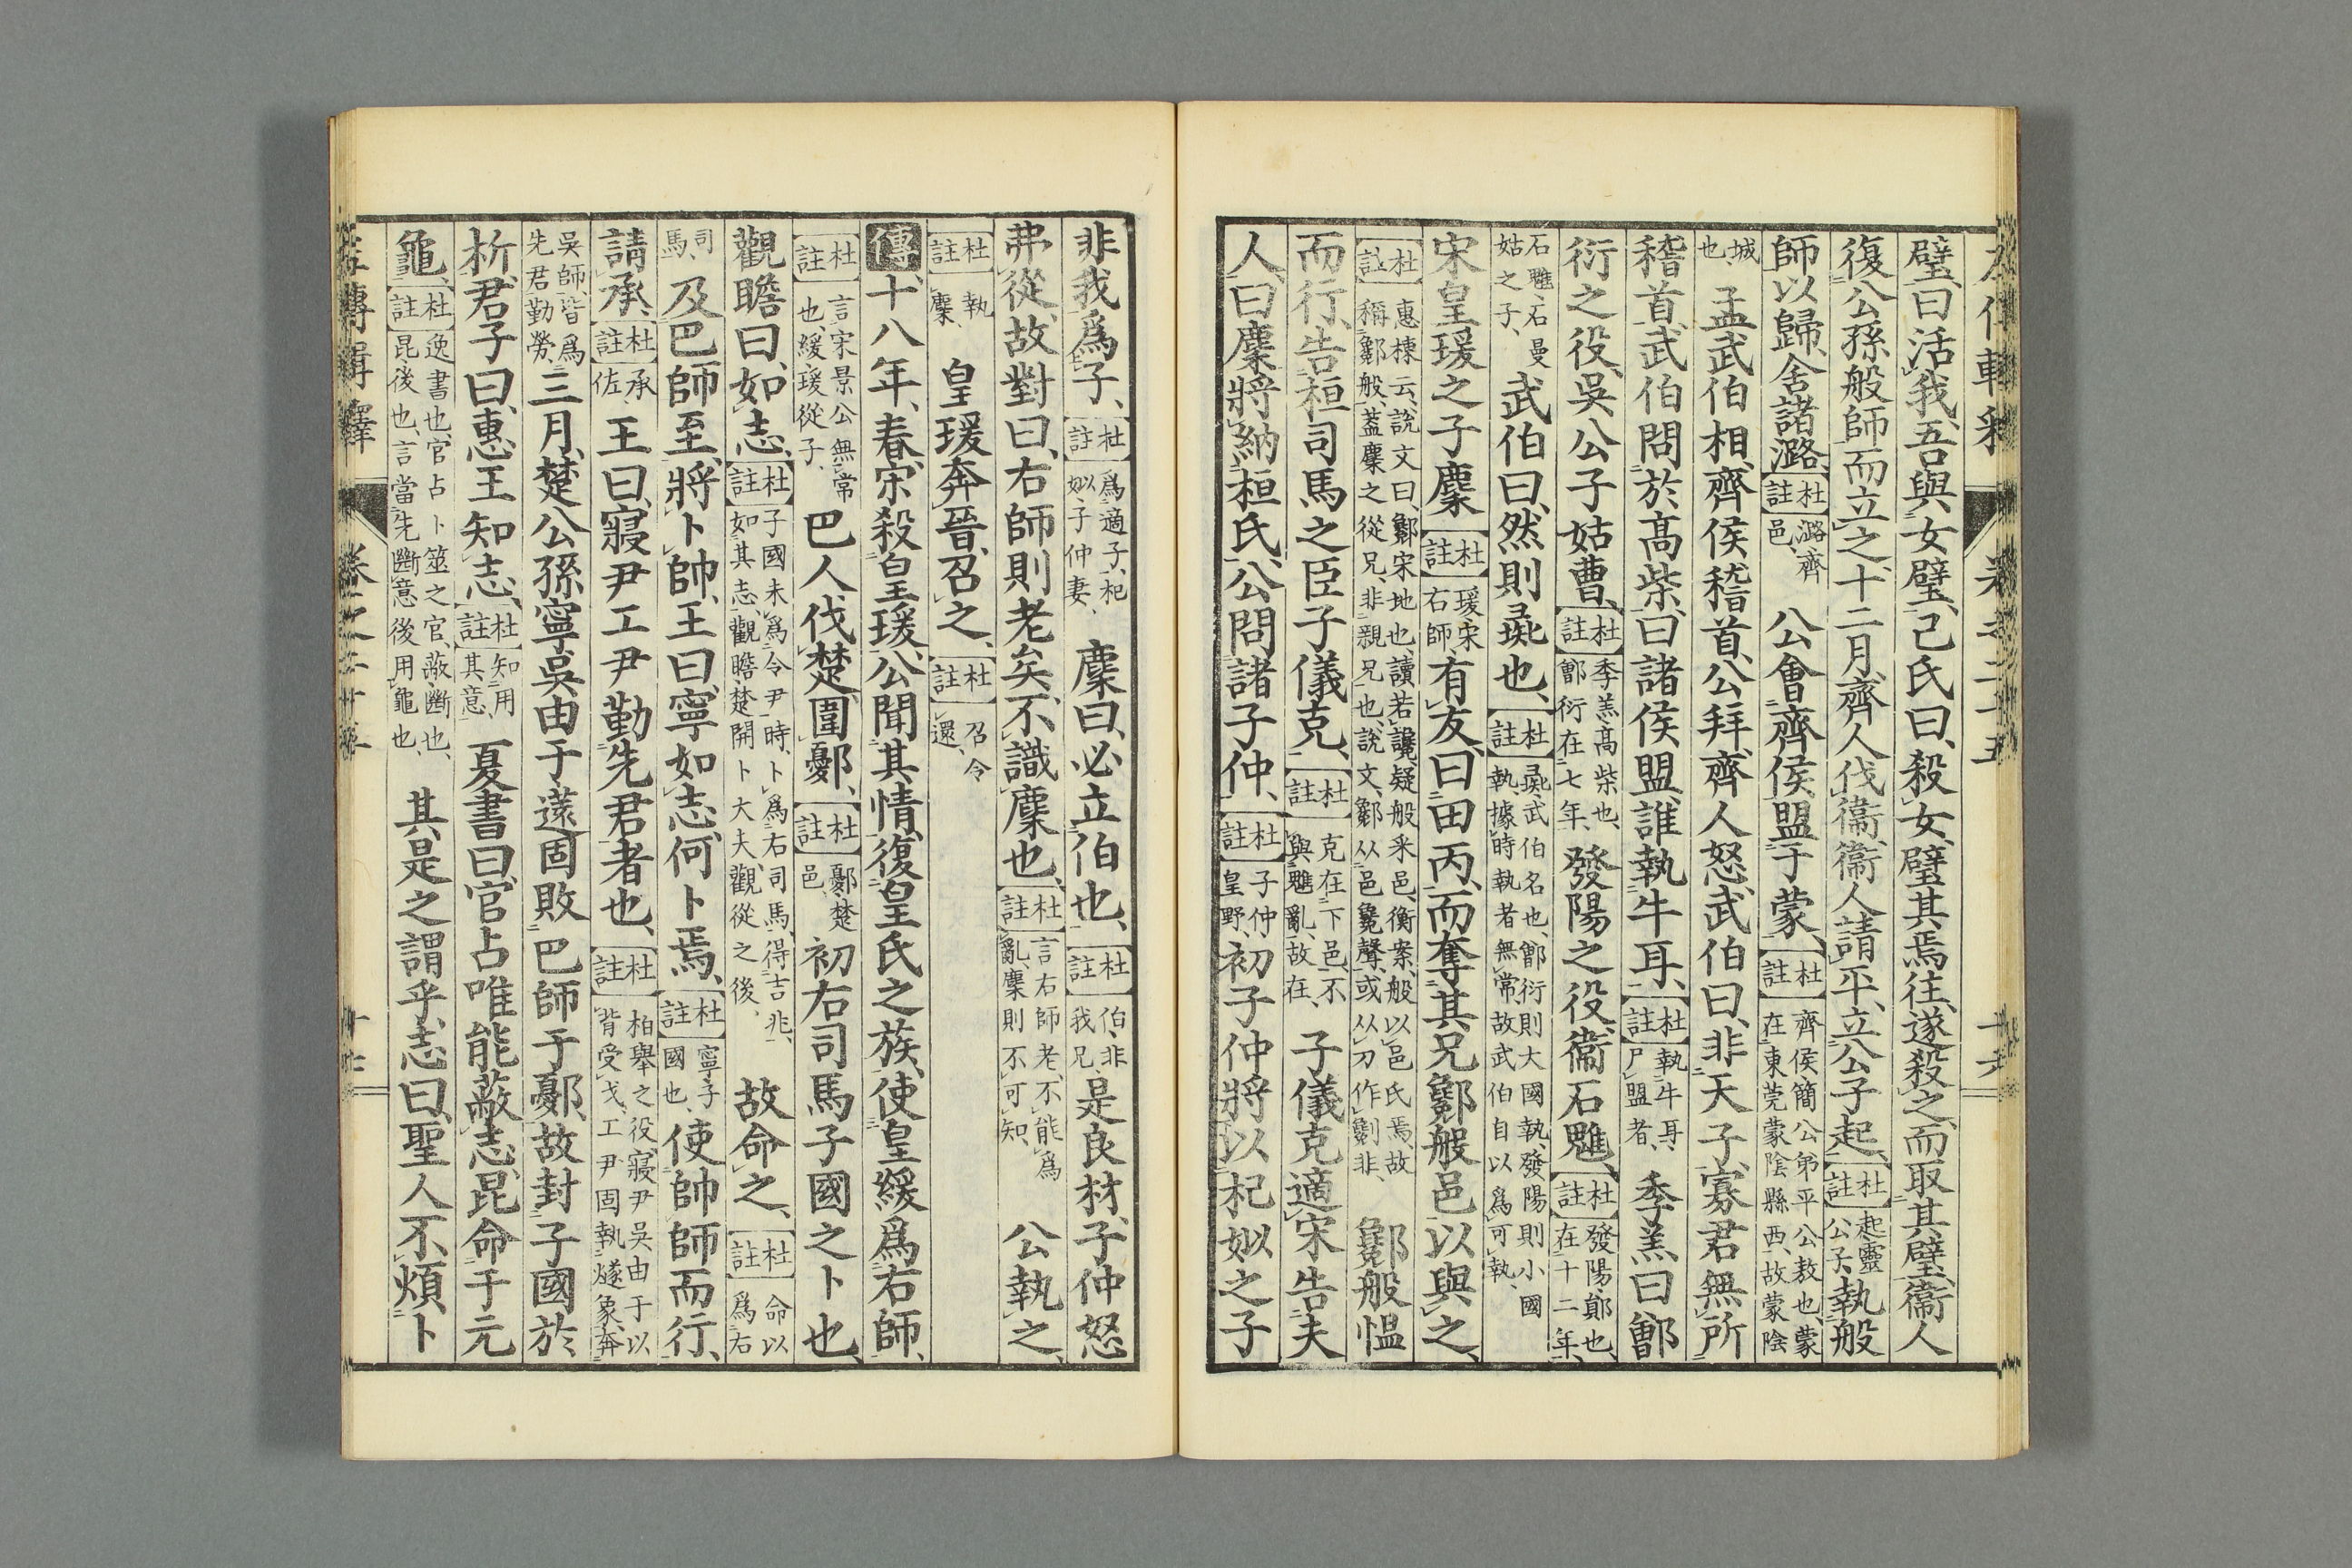 璧、曰活我、吾與女璧、己氏曰、殺女、璧其焉往、遂殺之、而取其璧、衞人
復公孫般師而立之、十二月、齊人伐衞、衞人請平、立公子起、杜註起靈公子、執般
師以歸、舍諸潞、杜註潞齊邑、公會齊侯、盟于蒙、杜註齊侯、簡公弟平公敖也、蒙在東莞蒙陰縣西、故蒙陰
城也、孟武伯相、齊侯稽首、公拜、齊人怒、武伯曰、非天子、寡君無所
稽首、武伯問於高柴、曰諸侯盟、誰執牛耳、杜註執牛耳、尸盟者、季羔曰鄫
衍之役、吳公子姑曹、杜註季羔、高柴也、鄫衍在七年、發陽之役、衞石魋、杜註發陽、鄖也、在十二年、
石魋、石曼姑之子、武伯曰、然則彘也、杜註彘武伯名也、鄫衍則大國執、發陽則小國執、據時執者無常、故武伯自以爲可執、
宋皇瑗之子麇杜註瑗宋右師、有友、曰田丙、而奪其兄酁般邑、以與之、
杜註惠棟云、說文曰、酁宋地也、讀若讒、疑般釆邑、衡案、般以邑氏焉、故稱酁般、蓋麇之從兄、非親兄也、說文、酁从邑毚聲、或从刀作劖非、酁般慍
而行、告桓司馬之臣子儀克、杜註克在下邑、不與魋亂、故在、子儀克適宋告夫
人、曰麇將納桓氏、公問諸子仲、杜註子仲皇野、初子仲將以杞姒之子
非我爲子、杜註爲適子、杞姒子仲妻、麇曰、必立伯也、杜註伯、非我兄、是良材、子仲怒
弗從、故對曰、右師則老矣、不識麇也、杜註言右師老、不能爲亂、麇則不可知、公執之、
杜註執麇、皇瑗奔晉、召之、杜註召令還、
傳十八年、春、宋殺皇瑗、公聞其情、復皇氏之族、使皇緩爲右師、
杜註言宋景公無常也、緩瑗從子、巴人伐楚、圍鄾、杜註鄾楚邑、初右司馬子國之卜也、
觀瞻曰、如志、杜註子國未爲令尹時、卜爲右司馬、得吉兆、如其志、觀瞻、楚開卜大夫、觀從之後、故命之、杜註命以爲右
司馬、及巴師至、將卜帥、王曰、寧如志、何卜焉、杜註寧子國也、使帥師而行、
請承、杜註承佐、王曰、寢尹工尹勤先君者也、杜註柏舉之役、寢尹吳由于以背受戈、工尹固執燧象、奔
吳師、皆爲先君勤勞、三月、楚公孫寧吳由于薳固敗巴師于鄾、故封子國於
析、君子曰、惠王知志、杜註知用其意、夏書曰、官占唯能蔽志、昆命于元
龜、杜註逸書也、官占卜筮之官、蔽斷也、昆後也、言當先斷意後用龜也、其是之謂乎、志曰、聖人不煩卜